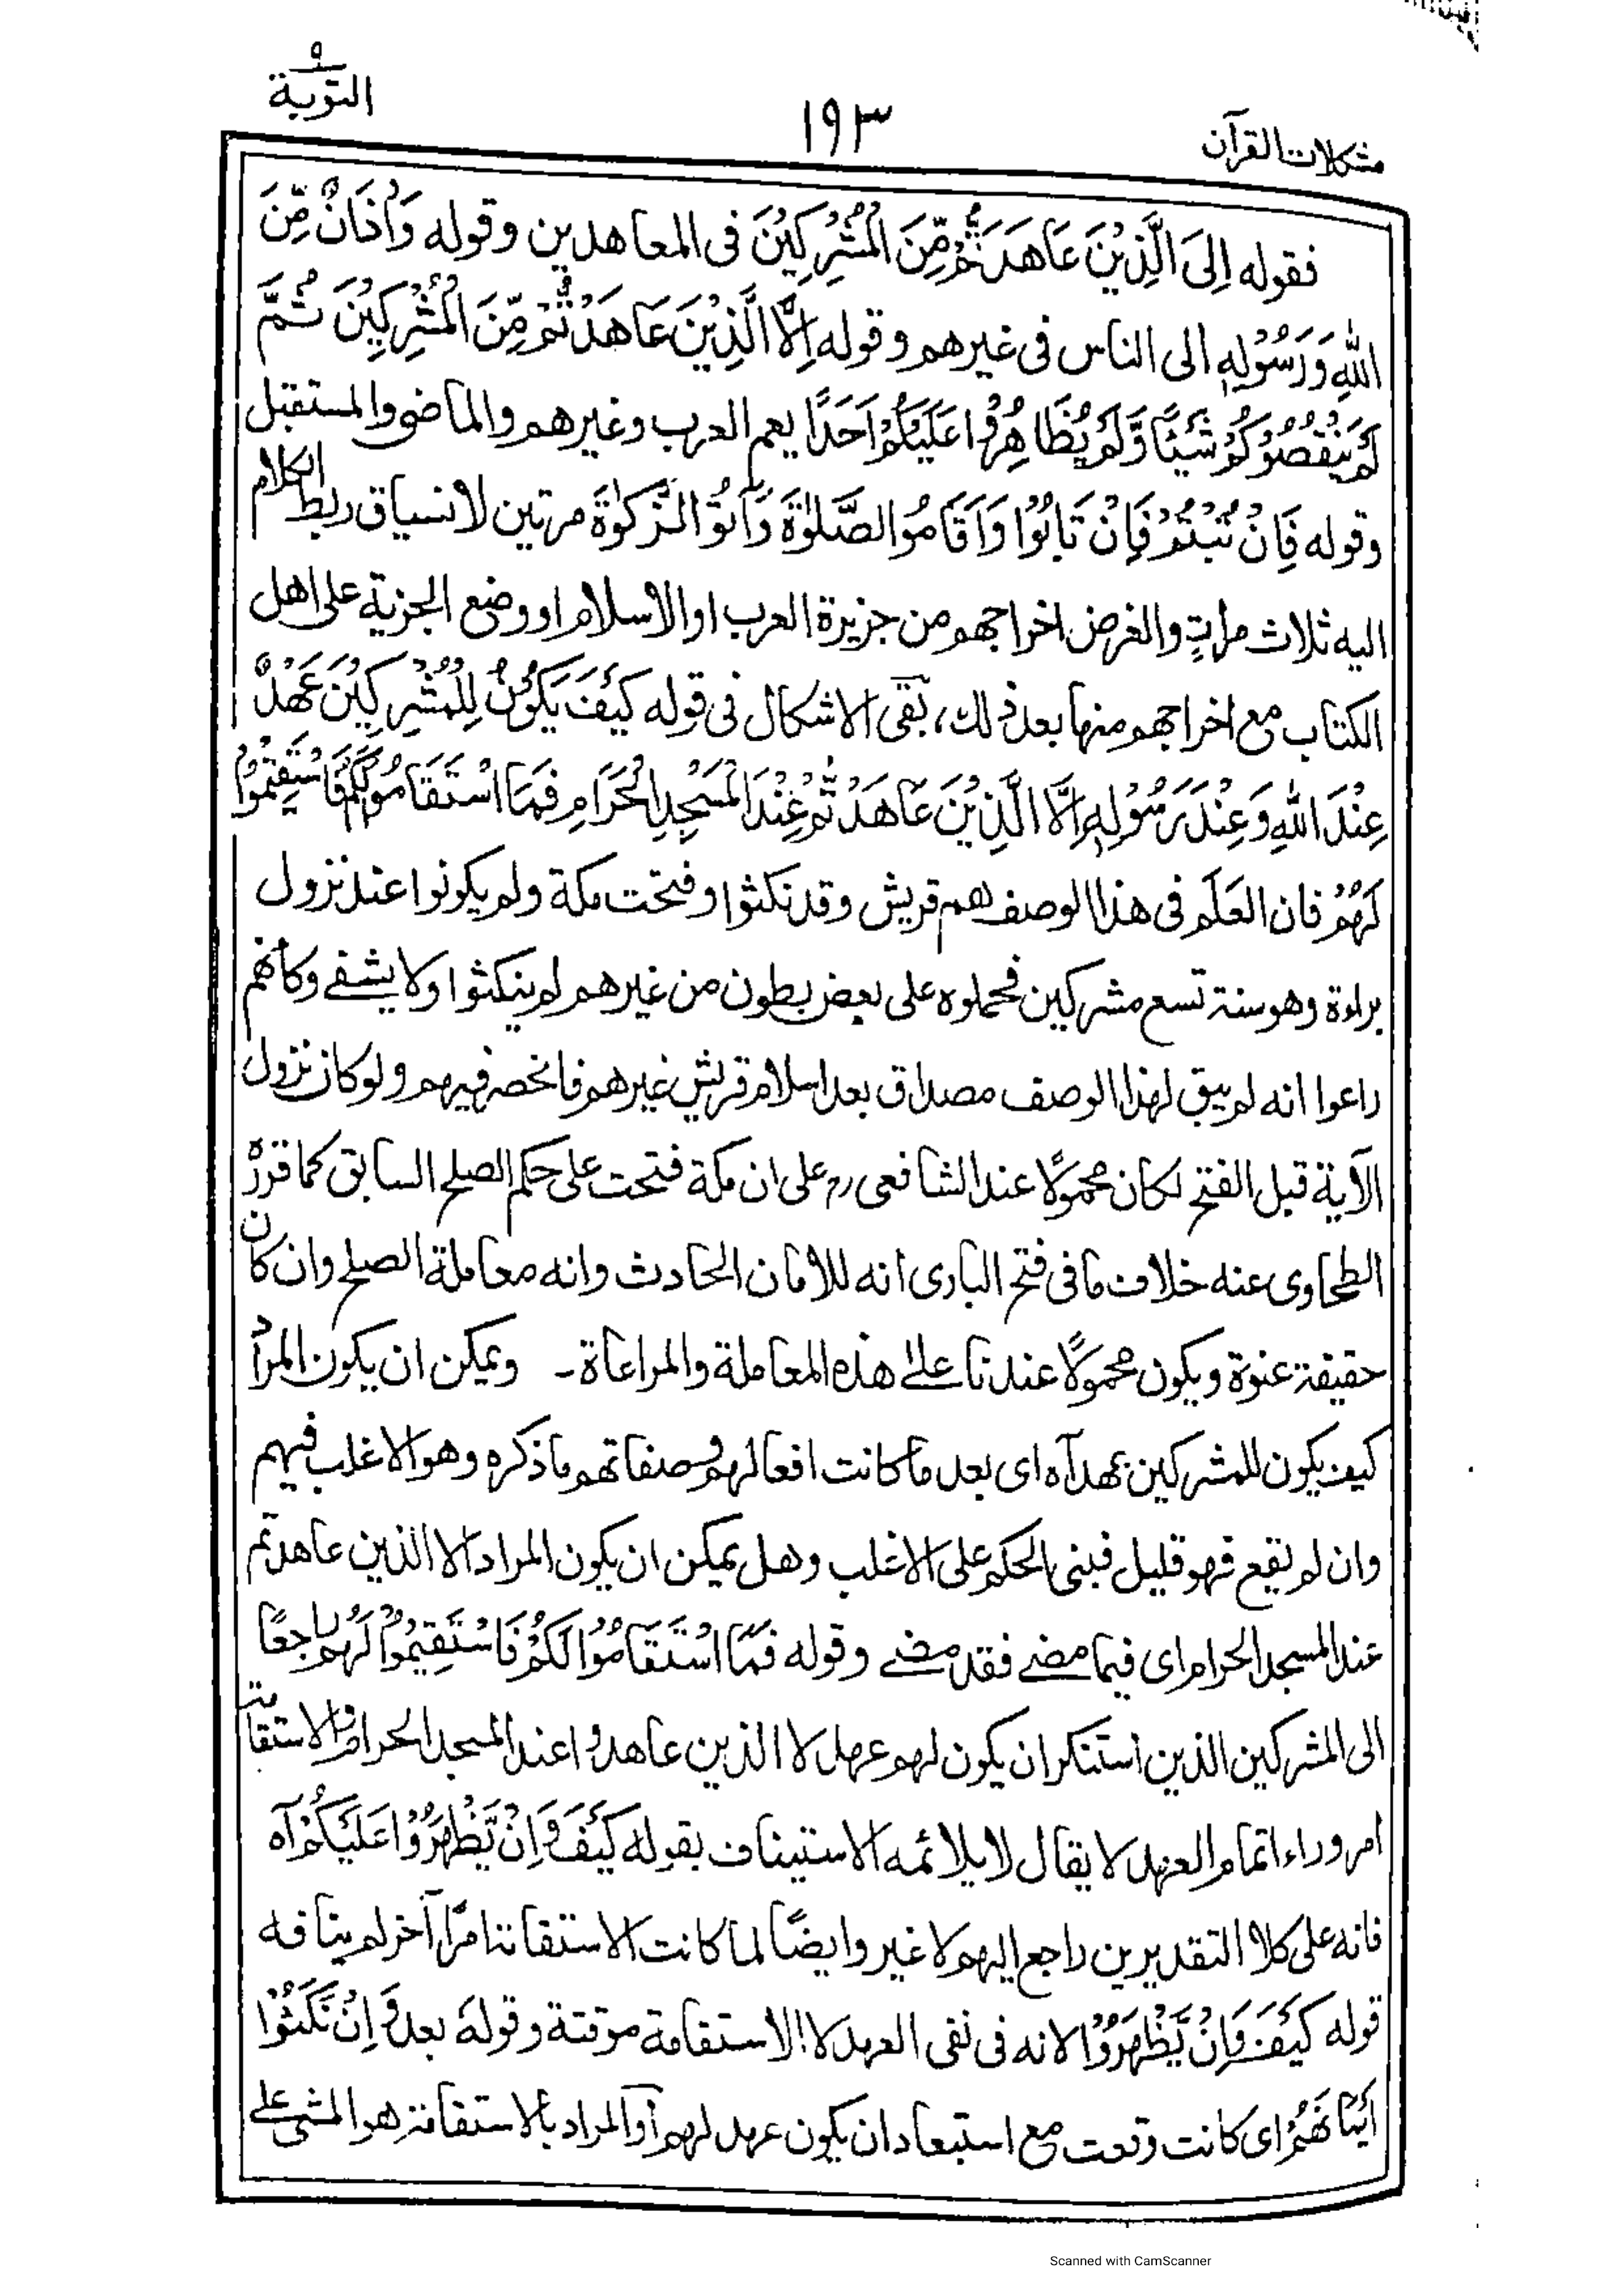 مشكلات القرآن
١٩٣
٩
التوبة
فقوله اِلَى الَّذِيْنَ عَاهَدْتُّمْ مِّنَ الْمُشْرِكِيْنَ فى المعاهدين وقوله وَاَذَانٌ مِّنَ
اللّٰهِ وَرَسُوْلِهٖ الى الناس فى غيرهم وقوله اِلَّا الَّذِيْنَ عَاهَدْتُّمْ مِّنَ الْمُشْرِكِيْنَ ثُمَّ
لَمْ يَنْقُصُوْكُمْ شَيْئًا وَّلَمْ يُظَاهِرُوْا عَلَيْكُمْ اَحَدًا يعم العرب وغيرهم والماضى والمستقبل
وقوله فَاِنْ تُبْتُمْ فَاِنْ تَابُوْا وَاَقَامُوا الصَّلٰوةَ وَآتَوُا الزَّكٰوةَ مرتين لانسياق ربط الكلام
اليه ثلاث مراتٍ والغرض اخراجهم من جزيرة العرب او الاسلام او وضع الجزية على اهل
الكتاب مع اخراجهم منها بعد ذلك، بَقى الاشكال فى قوله كَيْفَ يَكُوْنُ لِلْمُشْرِكِيْنَ عَهْدٌ
عِنْدَ اللّٰهِ وَعِنْدَ رَسُوْلِهٖ اِلَّا الَّذِيْنَ عَاهَدْتُّمْ عِنْدَ الْمَسْجِدِ الْحَرَامِ فَمَا اسْتَقَامُوْا لَكُمْ فَاسْتَقِيْمُوْا
لَهُمْ فان العَلَم فى هذا الوصف هم قريش وقد نكثوا وفتحت مكة ولم يكونوا عند نزول
براءة وهو سنة تسع مشركين فحملوه على بعض بطون من غيرهم لم ينكثوا ولا يشفے وكأنهم
راعوا انه لم يبق لهذا الوصف مصداق بعد اسلام قريش غيرهم فانحصر فيهم ولو كان نزول
الآية قبل الفتح لكان محمولًا عند الشافعى رح على ان مكة فتحت على حكم الصلح السابق كما قرره
الطحاوى عنه خلاف ما فى فتح البارى انه للامان الحادث وانه معاملة الصلح وان كان
حقيقة عنوة ويكون محمولًا عندنا علىٰ هذه المعاملة والمراعاة۔ ويمكن ان يكون المراد
كيف يكون للمشركين عهد آه اى بعد ما كانت افعالهم وصفاتهم ما ذكره وهو الاغلب فيهم
وان لم يقع فهو قليل فبنى الحكم على الاغلب وهل يمكن ان يكون المراد الا الذين عاهدتم
عند المسجد الحرام اى فيما مضے فقد مضے وقوله فَمَا اسْتَقَامُوْا لَكُمْ فَاسْتَقِيْمُوْا لَهُمْ راجعًا
الى المشركين الذين استنكر ان يكون لهم عهد لا الذين عاهدوا عند المسجد الحرام والاستقامة
امر وراء اتمام العهد لا يقال لا يلائمه الاستيناف بقوله كَيْفَ وَاِنْ يَّظْهَرُوْا عَلَيْكُمْ آه
فانه على كلا التقديرين راجع اليهم لا غير وايضًا لما كانت الاستقامة امرًا آخر لم ينافه
قوله كَيْفَ وَاِنْ يَّظْهَرُوْا لانه فى نفى العهد لا الاستقامة موقتة وقولهُ بعد وَاِنْ نَّكَثُوْا
اَيْمَانَهُمْ اى كانت وقعت مع استبعاد ان يكون عهد لهم آو المراد بالاستقامة هو المشى علے
Scanned with CamScanner